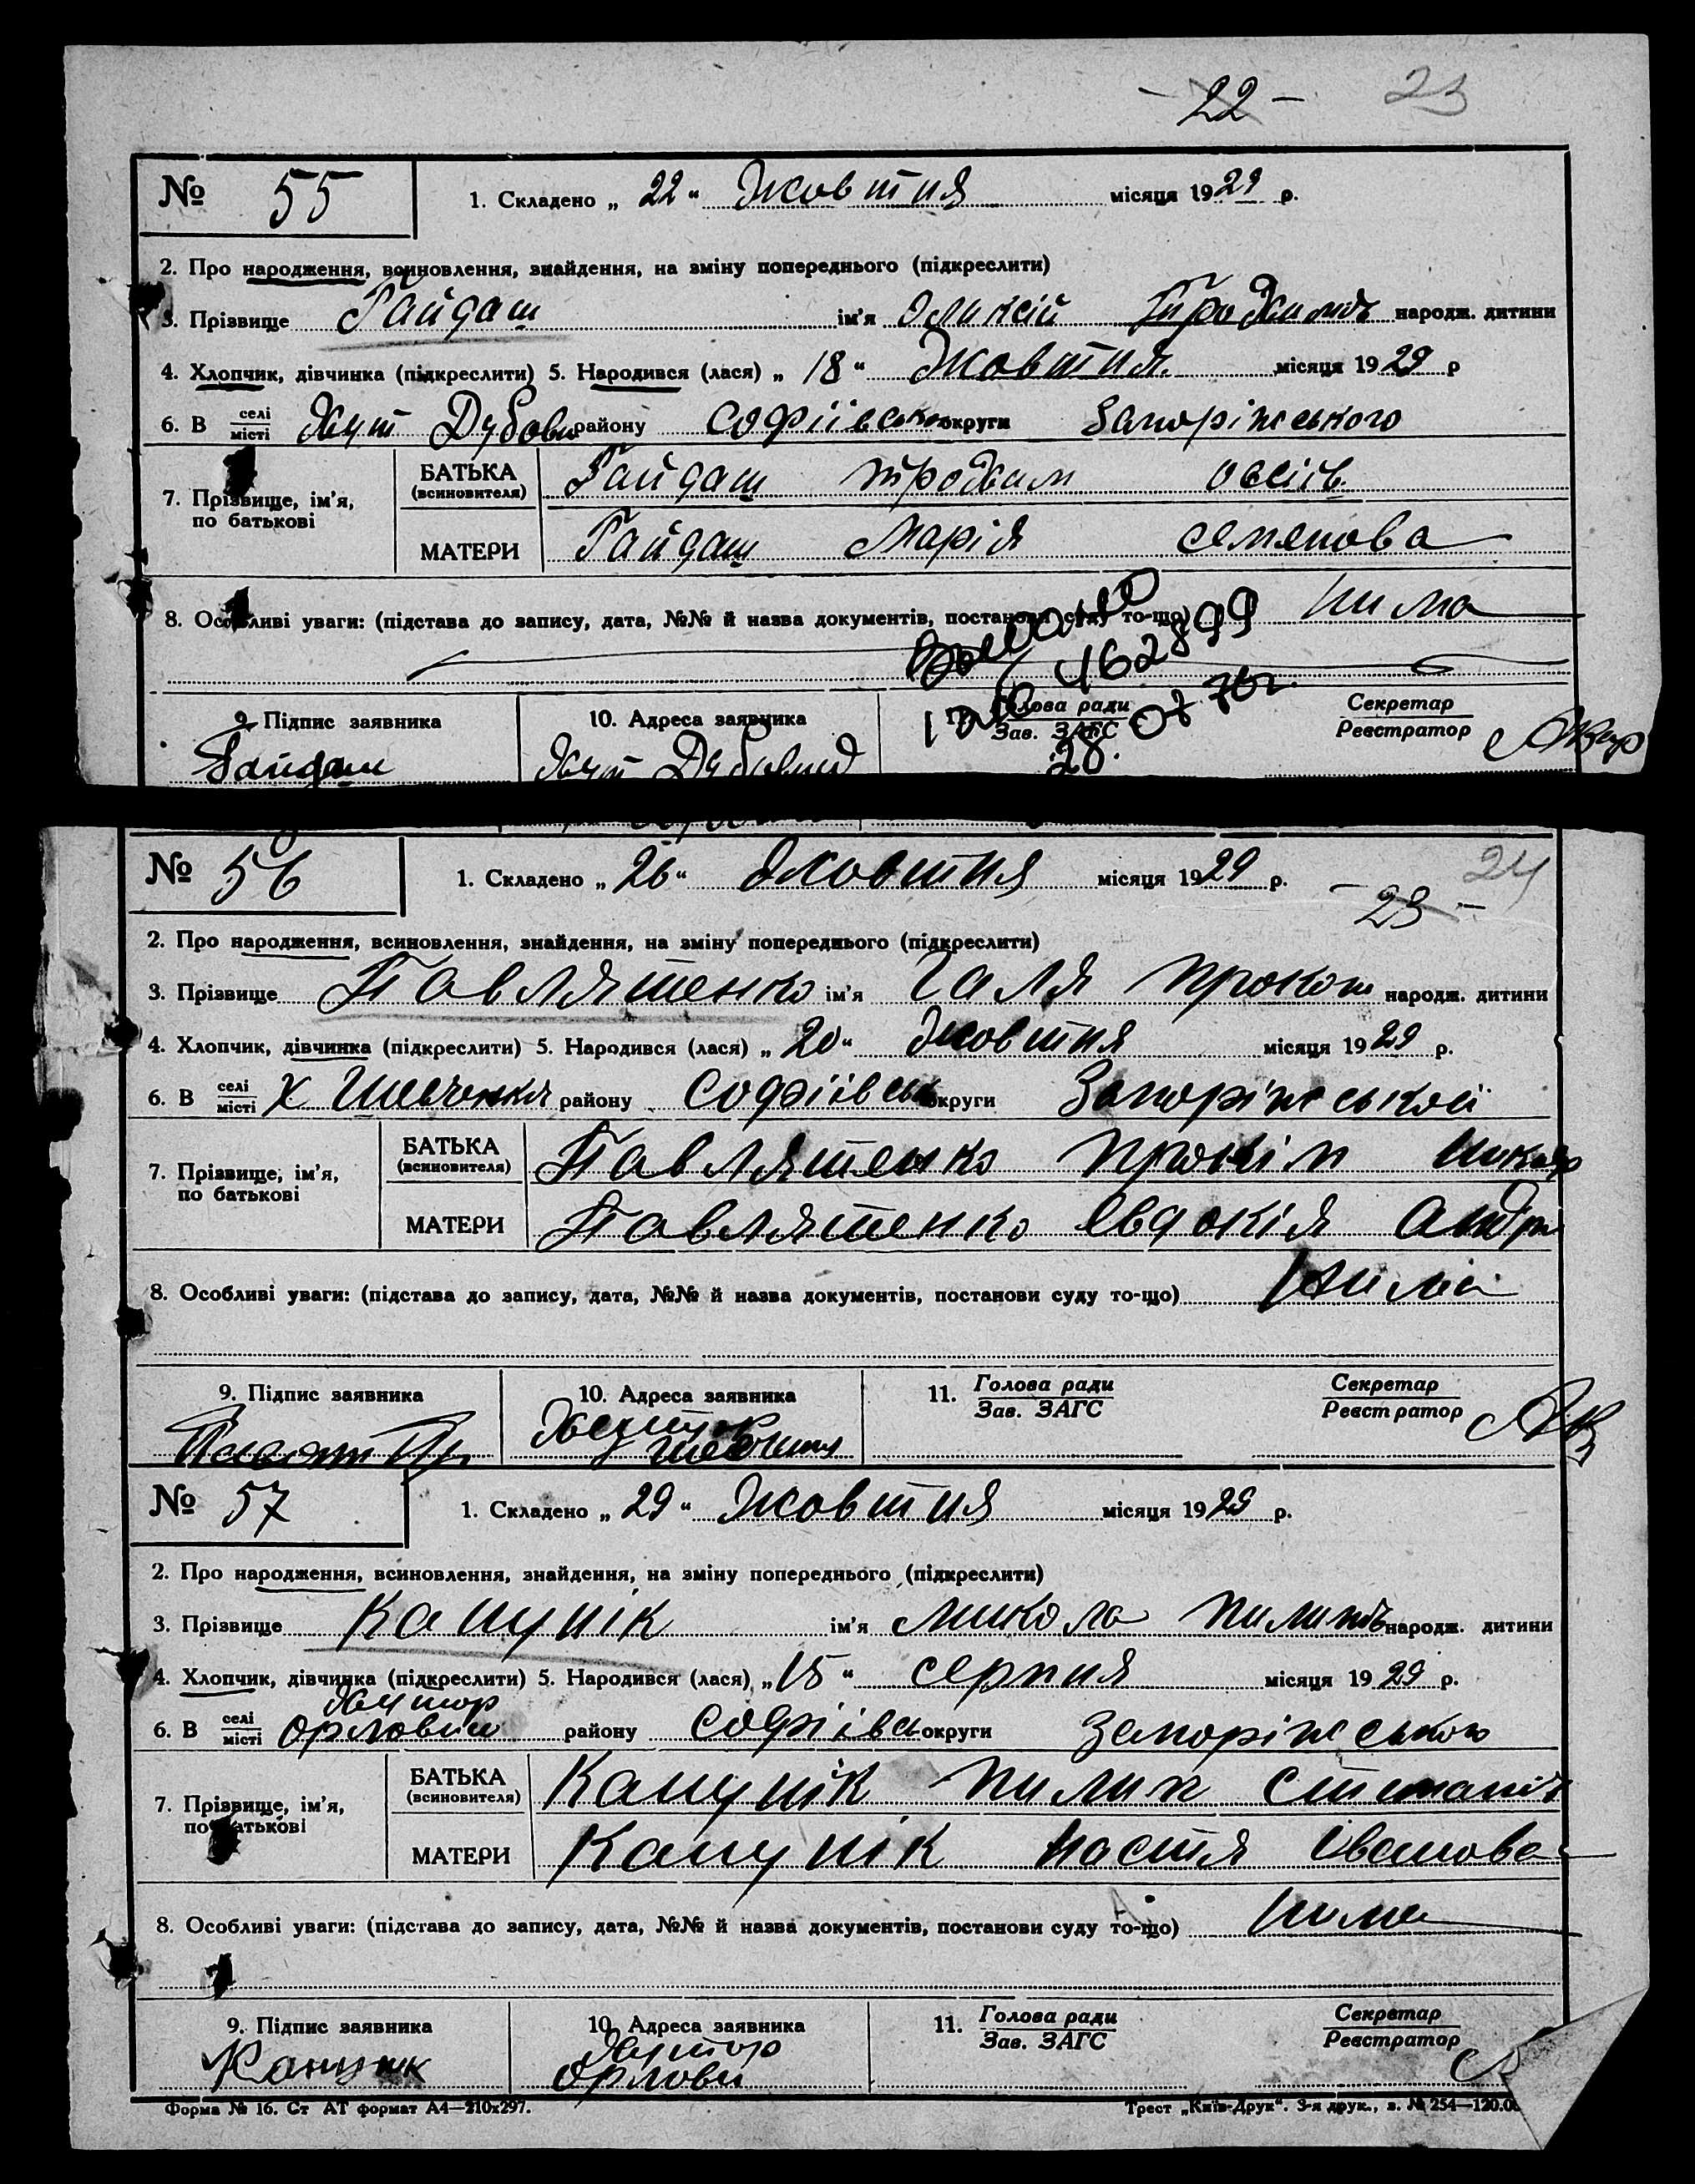 - 22 - 23
№ 55 1. Складено „ 22 “ Жовтня місяця 1929 р.
2. Про народження, всиновлення, знайдення, на зміну попереднього (підкреслити)
3. Прізвище Гайдаш ім'я Оликсій народж. дитини
4. Хлопчик, дівчинка (підкреслити) 5. Народився (лася) „ 18 “ Жовтня місяця 1929 р
6. В селі/місті Хут Дубови району Софіівсько округи Запоріжського
7. Прізвище, ім'я, по батькові
БАТЬКА (всиновителя) Гайдаш трохим овсіів
МАТЕРИ Гайдаш Марія семенова
8. Особливі уваги: (підстава до запису, дата, №№ й назва документів, постанови суду то-що) нима
162899
28. 07 76г.
9. Підпис заявника 10. Адреса заявника 11. Голова ради/Зав. ЗАГС Секретар/Реєстратор
Гайдаш Хут
№ 56 1. Складено „ 26 “ Жовтня місяця 1929 р. 24
- 23 -
2. Про народження, всиновлення, знайдення, на зміну попереднього (підкреслити)
3. Прізвище Павлятенко ім'я Галя Прокоп народж. дитини
4. Хлопчик, дівчинка (підкреслити) 5. Народився (лася) „ 20 “ Жовтня місяця 1929 р.
6. В селі/місті х Шевченка району Софіівськ округи Запоріжськой
7. Прізвище, ім'я, по батькові
БАТЬКА (всиновителя) Павлятенко Прокіп
МАТЕРИ Павлятенко Евдокія Андрі
8. Особливі уваги: (підстава до запису, дата, №№ й назва документів, постанови суду то-що) нима
9. Підпис заявника 10. Адреса заявника 11. Голова ради/Зав. ЗАГС Секретар/Реєстратор
№ 57 1. Складено „ 29 “ Жовтня місяця 1929 р.
2. Про народження, всиновлення, знайдення, на зміну попереднього (підкреслити)
3. Прізвище Капунік ім'я Микола народж. дитини
4. Хлопчик, дівчинка (підкреслити) 5. Народився (лася) „ 15 “ серпня місяця 1929 р.
Хутор
6. В селі/місті Орлови району Софіівсь округи Запоріжською
7. Прізвище, ім'я, по батькові
БАТЬКА (всиновителя) Капунік Пилип
МАТЕРИ Капунік Настя Іванова
8. Особливі уваги: (підстава до запису, дата, №№ й назва документів, постанови суду то-що) нима
9. Підпис заявника 10. Адреса заявника 11. Голова ради/Зав. ЗАГС Секретар/Реєстратор
Хутор
Орлови
Форма № 16. Ст АТ формат А4—210х297. Трест „Київ-Друк“. 3-я друк., з. № 254—120.0